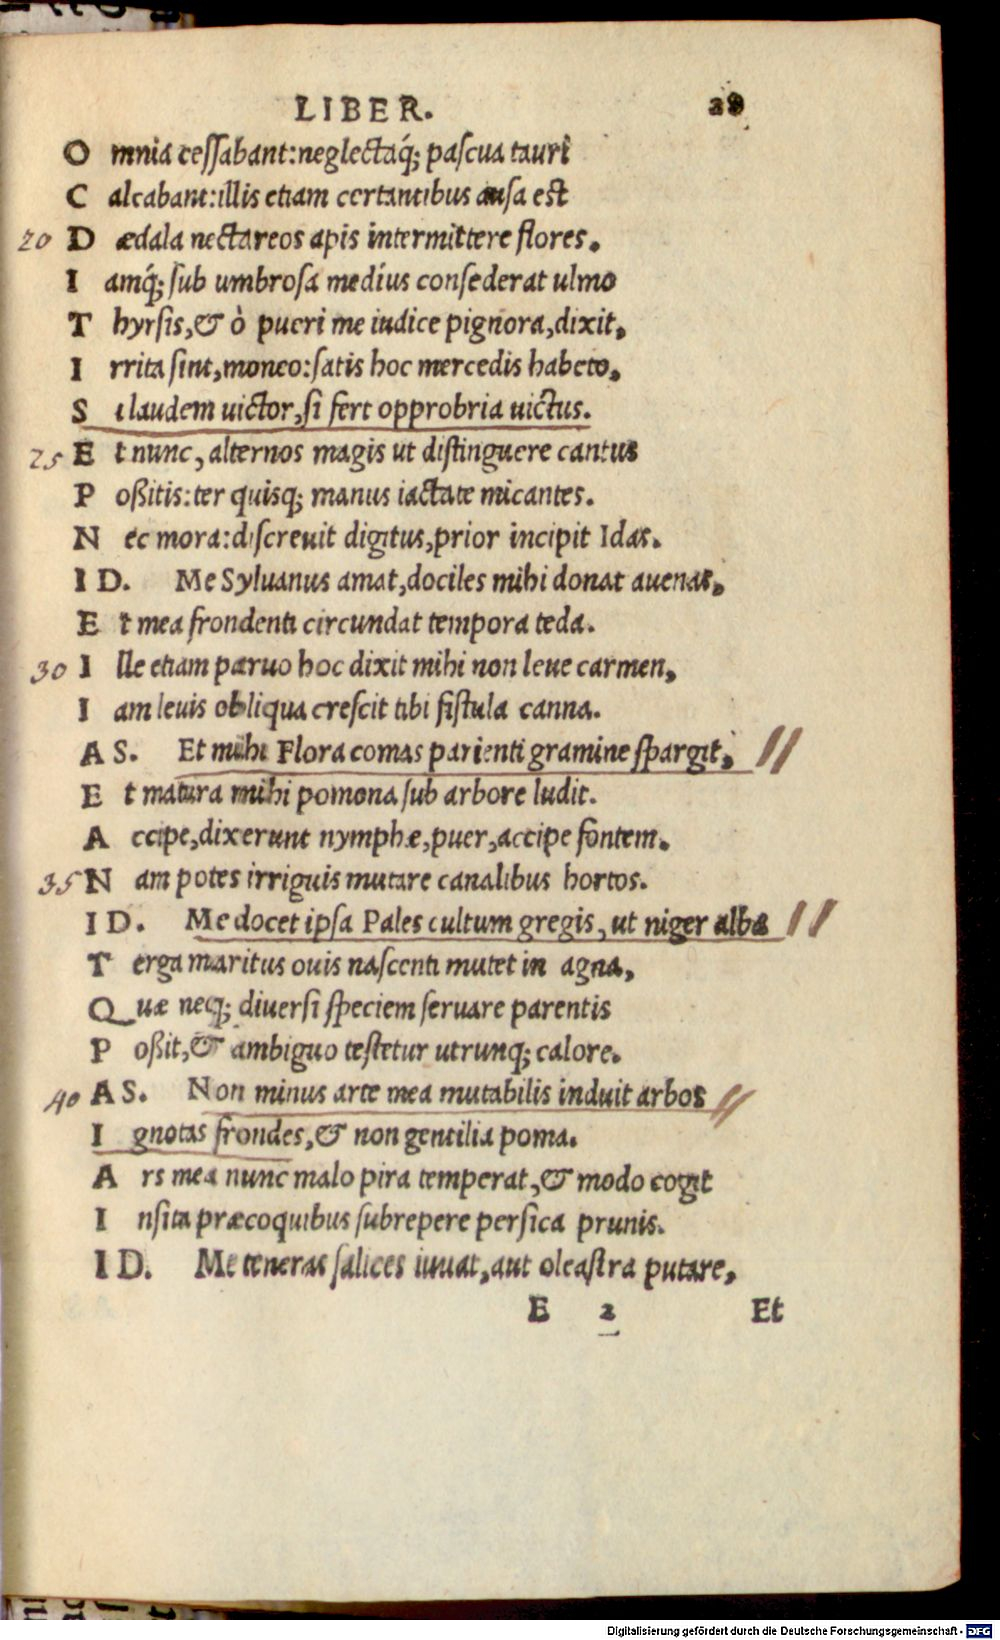 LIBER. 28
O mnia cessabant: neglectaq́; pascua tauri
C alcabant: illis etiam certantibus ausa est
20 D ædala nectareos apis intermittere flores.
I amq́; sub umbrosa medius consederat ulmo
T hyrsis, & ò pueri me iudice pignora, dixit,
I rrita sint, moneo: satis hoc mercedis habeto,
S i laudem uictor, si fert opprobria uictus.
25 E t nunc, alternos magis ut distinguere cantus
P oßitis: ter quisq; manus iactate micantes.
N ec mora: discreuit digitus, prior incipit Idas.
I D. Me Syluanus amat, dociles mihi donat auenas,
E t mea frondenti circundat tempora teda.
30 I lle etiam paruo hoc dixit mihi non leue carmen,
I am leuis obliqua crescit tibi fistula canna.
A S. Et mihi Flora comas parienti gramine spargit, //
E t matura mihi pomona sub arbore ludit.
A ccipe, dixerunt nymphæ, puer, accipe fontem.
35 N am potes irriguis mutare canalibus hortos.
I D. Me docet ipsa Pales cultum gregis, ut niger albæ //
T erga maritus ouis nascenti mutet in agna,
Q uæ neq; diuersi speciem seruare parentis
P oßit, & ambiguo testetur utrunq; calore.
40 A S. Non minus arte mea mutabilis induit arbos //
I gnotas frondes, & non gentilia poma.
A rs mea nunc malo pira temperat, & modo cogit
I nsita præcoquibus subrepere persica prunis.
I D. Me teneras salices iuuat, aut oleastra putare,
E 2 Et
Digitalisierung gefördert durch die Deutsche Forschungsgemeinschaft - DFG